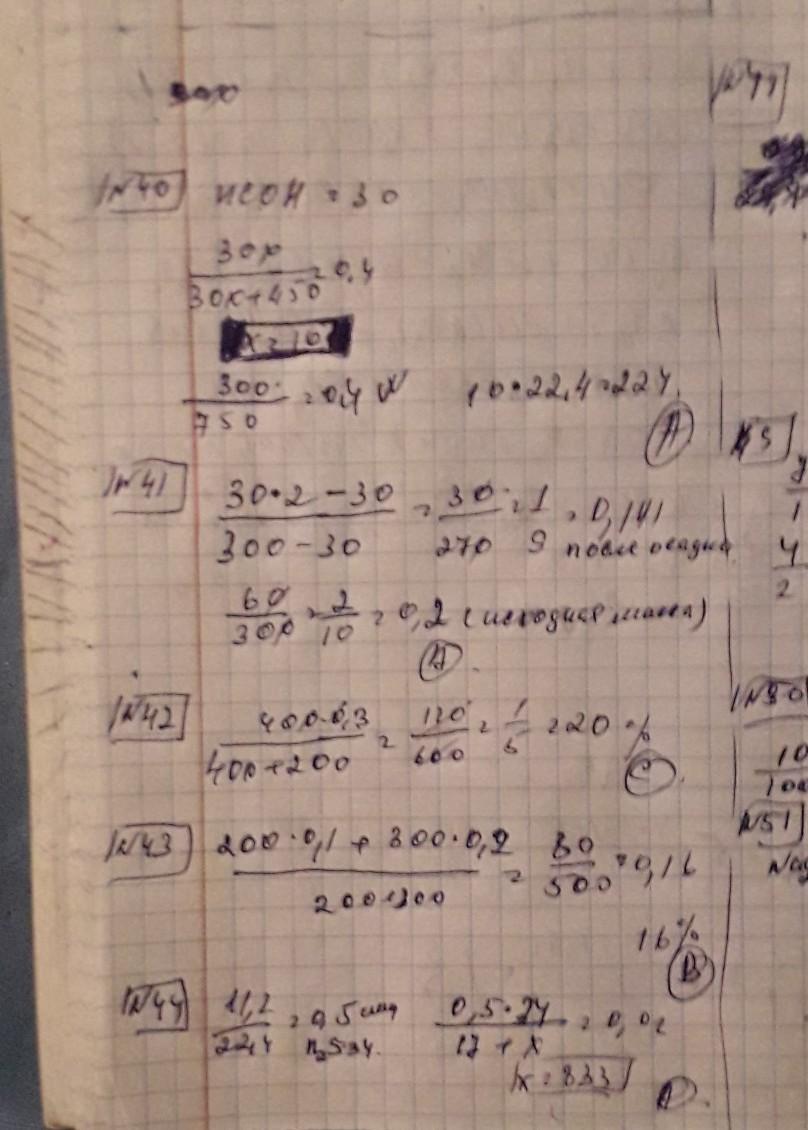 30x
N40 HCOH = 30
30x / 30x+450 = 0,4
x = 10
300 / 750 = 0,4 10•22,4=224
A
N41 30•2-30 / 300-30 = 30 / 270 = 1 / 9 = 0,111
после осадка
60 / 300 = 2 / 10 = 0,2 (исходная масса)
A
N42 400•0,3 / 400+200 = 120 / 600 = 1 / 5 = 20 %
C
N43 200•0,1 + 300•0,2 / 200+300 = 80 / 500 = 0,16
16%
B
N44 11,2 / 22,4 = 0,5 0,5•34 / 17 + x = 0,02
x = 833
N50
10
N51